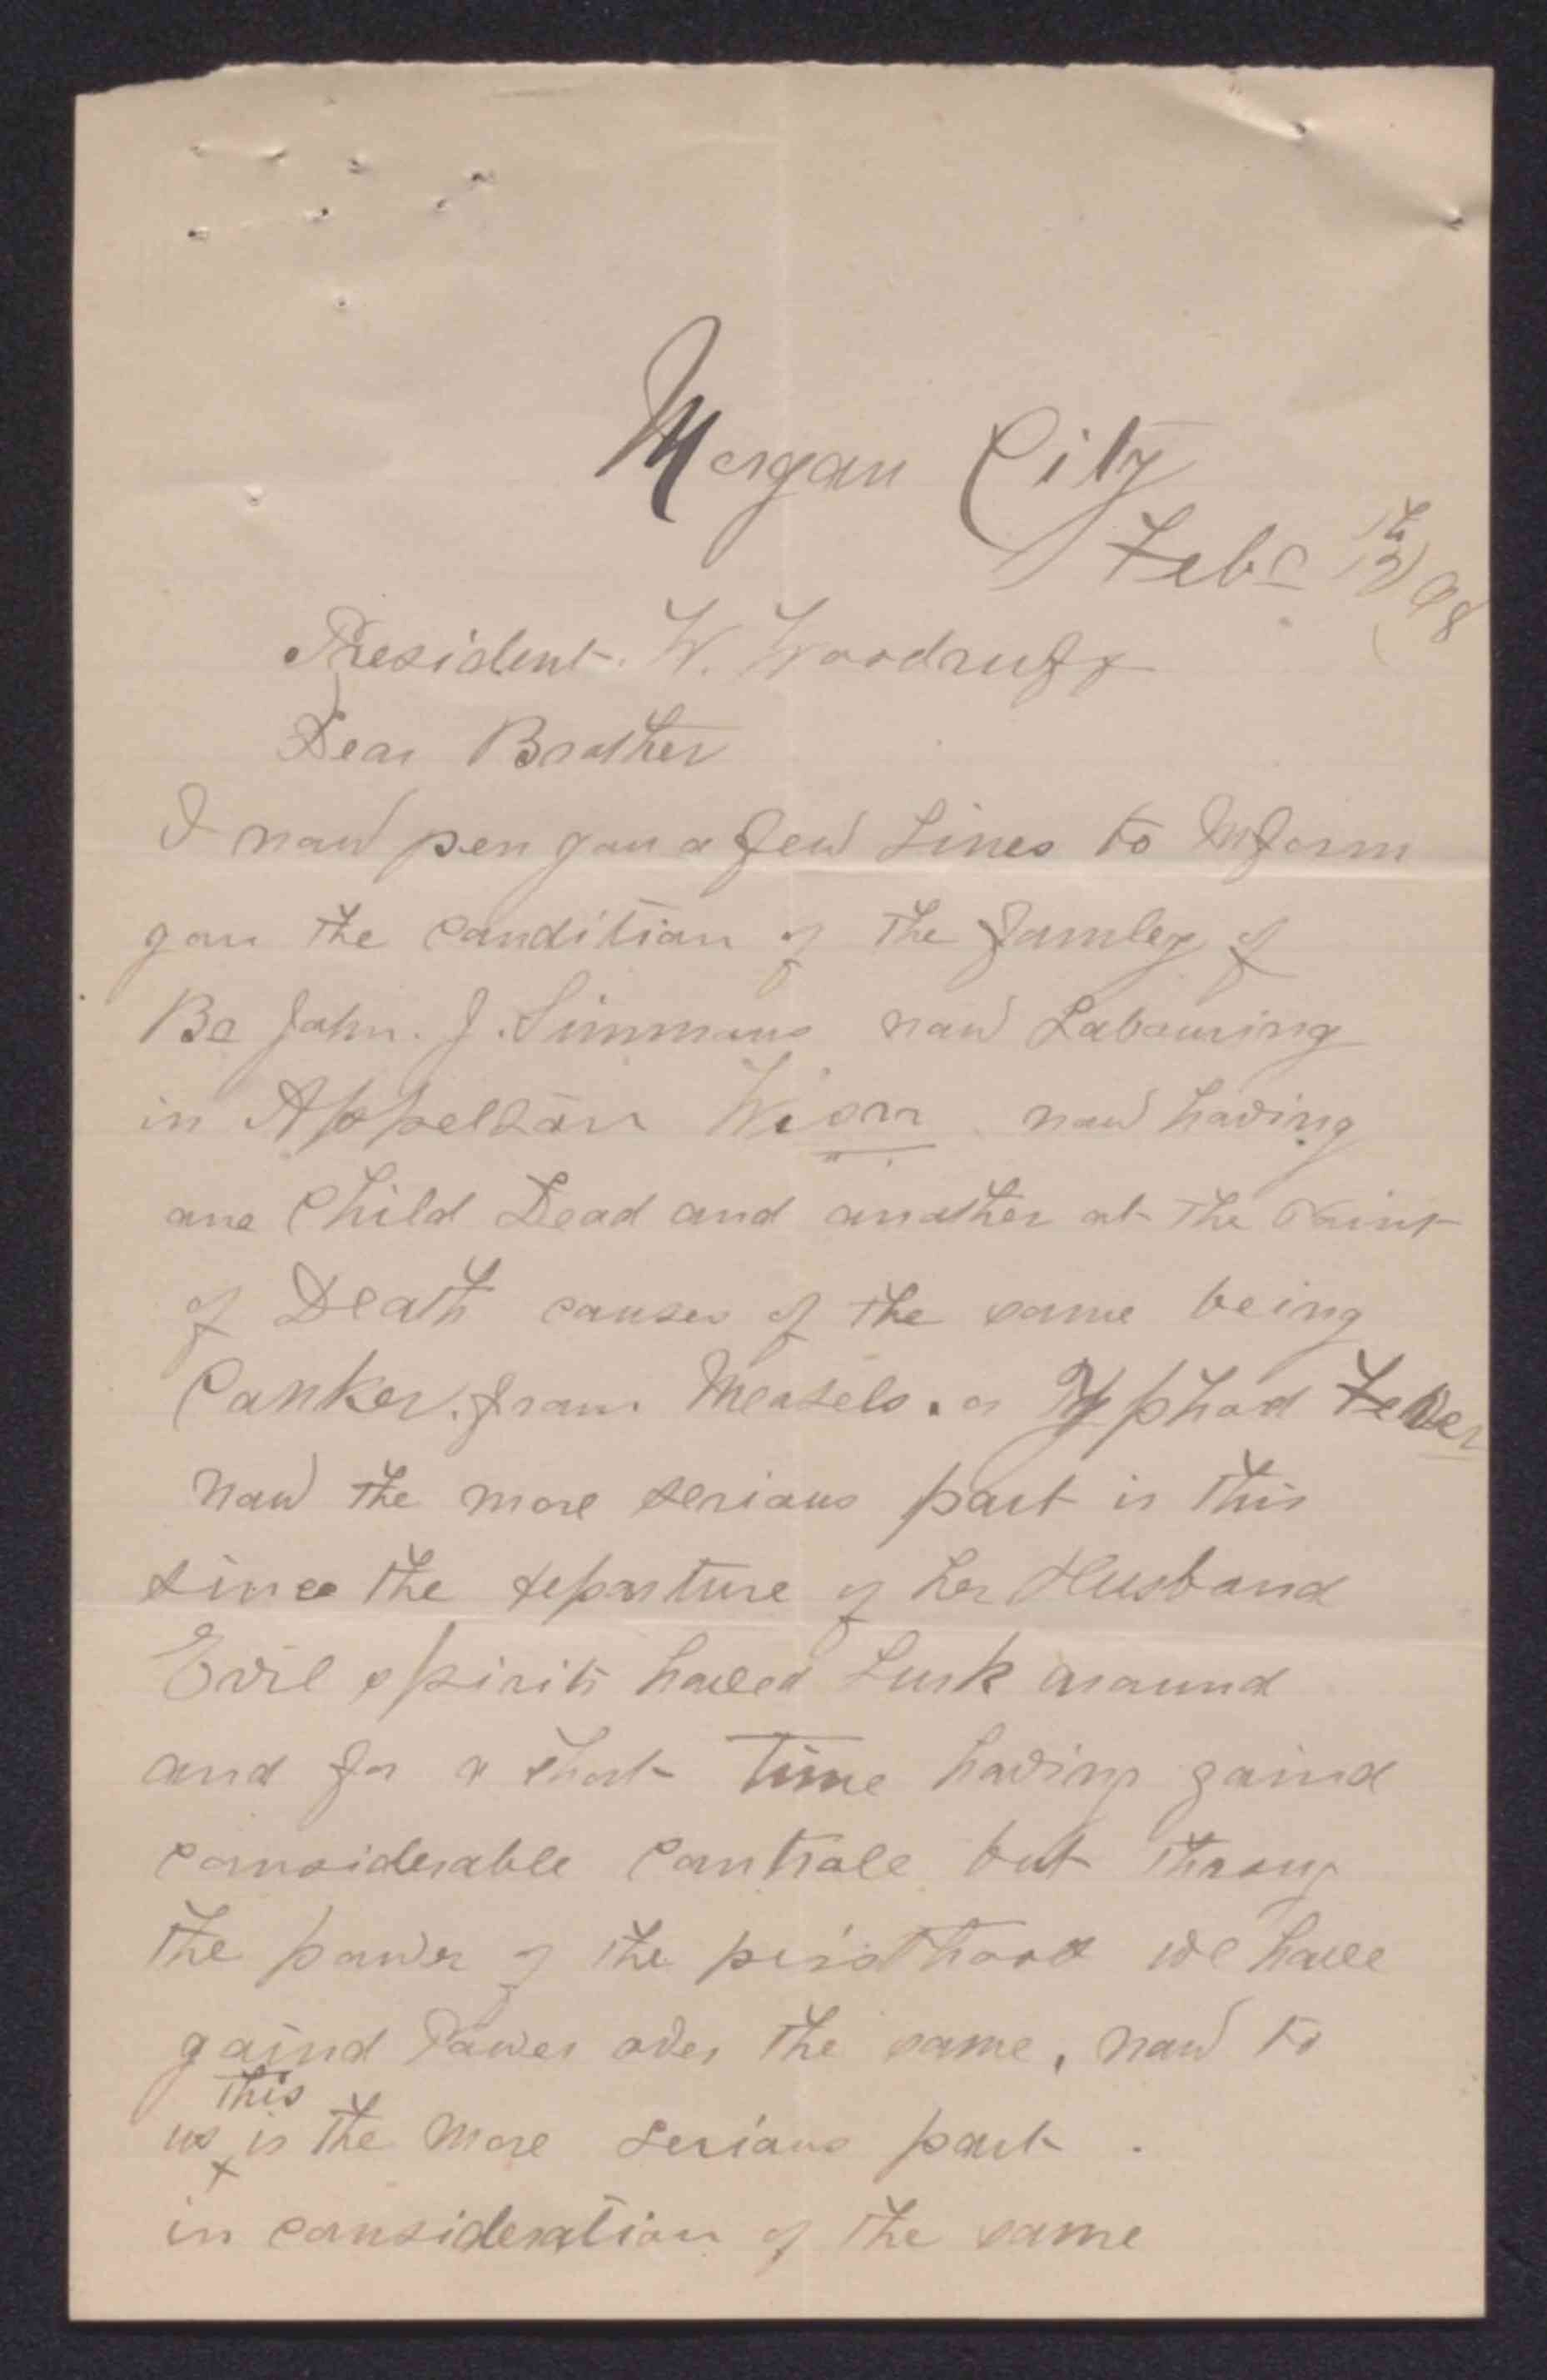 Morgan City
Feb 12th 98
President. W. Woodruff
Dear Brother
I now pen you a few Lines to Inform
you the condition of the famley of
Bro John. J. Simmons now Labouring
in Appelton Wisn now having
one Child Dead and another at the Point
of Death causes of the same being
Canker. from Measels. or Typhod Fever
now the more serious part is this
since the departure of her Husband
Evil spirits haved Lurk around
and for a short time having gaind
considerable controle but throug
the power of the peisthood we have
gaind Power over the same, now to
us this is the more serious part .
in consideration of the same